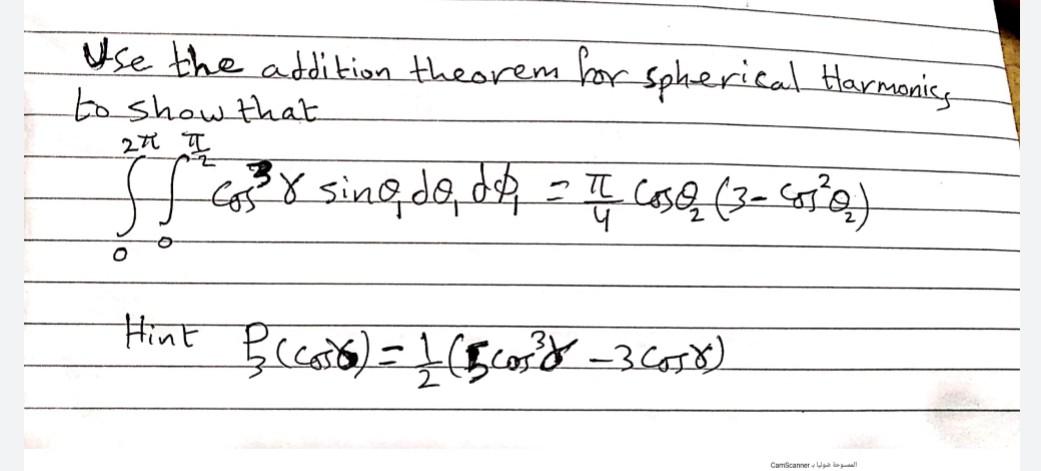 Use the addition theorem for spherical Harmonics
to show that
∫₀^2π ∫₀^π/2 cos³γ sinθ₁ dθ₁ dϕ₁ = π/4 cosθ₂ (3 - cos²θ₂)
Hint P₃(cosγ) = 1/2 (5cos³γ - 3cosγ)
الممسوحة ضوئيا بـ CamScanner